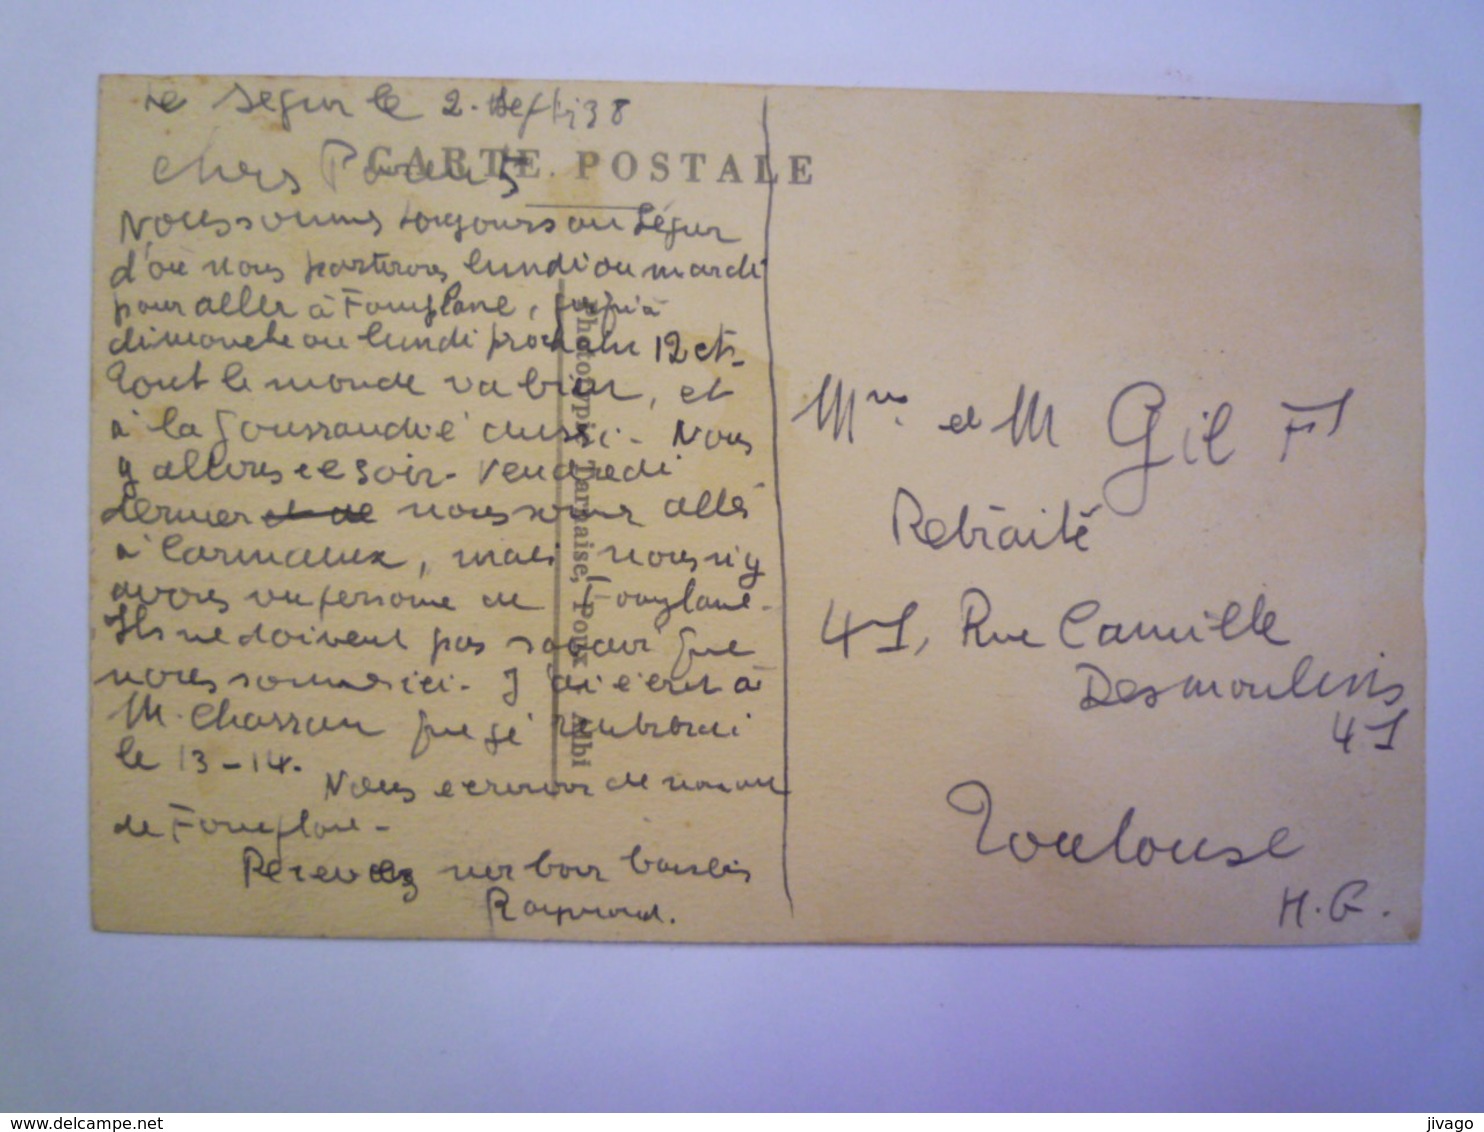 Le Ségur le 2. Sept 38
CARTE POSTALE
Chers Parents
Nous sommes toujours au Ségur
d'où nous partirons lundi ou mardi
pour aller à Fonplane, jusqu'à
dimanche ou lundi prochain 12 ct.
Tout le monde va bien, et
à la aussi. Nous
y allons ce soir. Vendredi
dernier nous sommes allés
à Carmaux, mais nous n'y
avons vu personne de Fonplane.
Ils ne doivent pas savoir que
nous sommes ici. J'ai écrit à
M. Chassan que je
le 13-14.
Nous écrirons de nouveau
de Fonplane.
Recevez nos bons baisers
Raymond.
Phototypie Tarnaise, Poux - Albi
Mme et M Gil Fs
Retraité
41, Rue Camille
Desmoulins
41
Toulouse
H.G.
delcampe.net
jivago